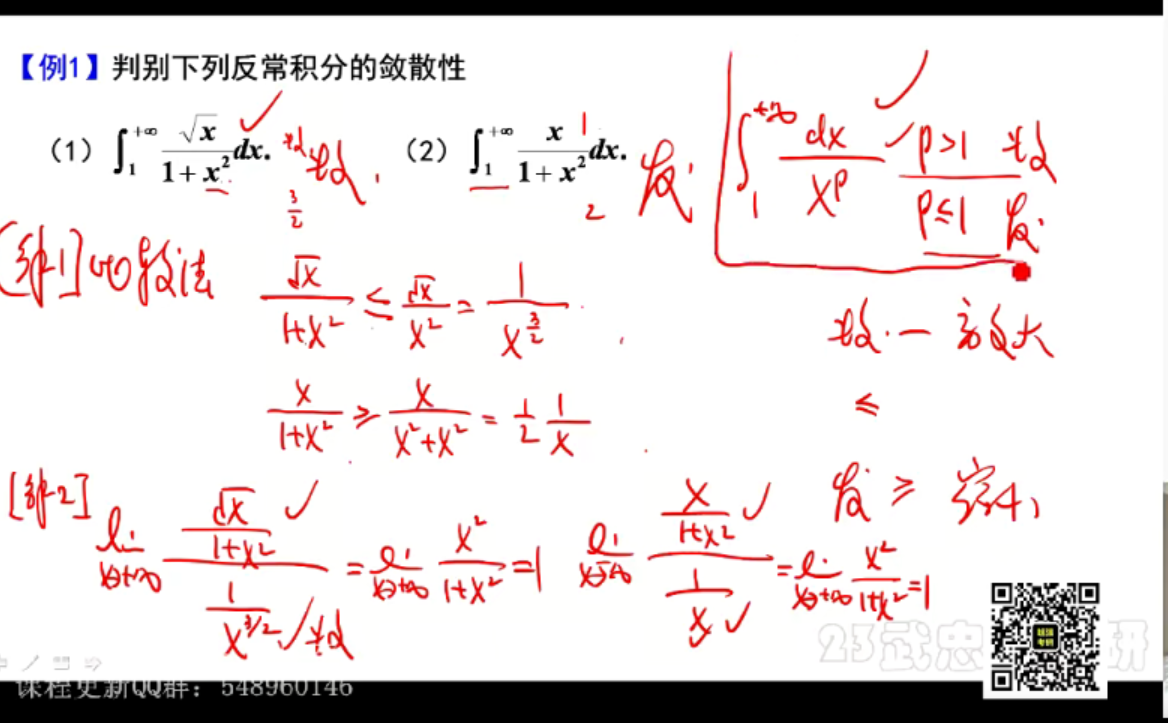 【例1】判别下列反常积分的敛散性
(1) ∫₁^{+∞} √x/(1+x²) dx. 收敛. (2) ∫₁^{+∞} x/(1+x²) dx. 发
3/2
1
2
∫₁^{+∞} dx/x^p p>1 收
p≤1 发
[解1] 比较法 √x/(1+x²) ≤ √x/x² = 1/x^{3/2}
收. — 放大
≤
x/(1+x²) ≥ x/(x²+x²) = 1/2 1/x
发 ≥
[解2] lim_{x→+∞} (√x/(1+x²))/(1/x^{3/2}) = lim_{x→+∞} x²/(1+x²) = 1
lim_{x→+∞} (x/(1+x²))/(1/x) = lim_{x→+∞} x²/(1+x²) = 1
23武忠 研
课程更新QQ群：548960146